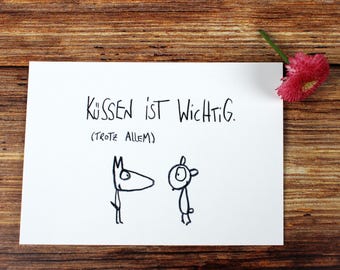 KÜSSEN iST WiCHTiG.
(TROTZ ALLEM)